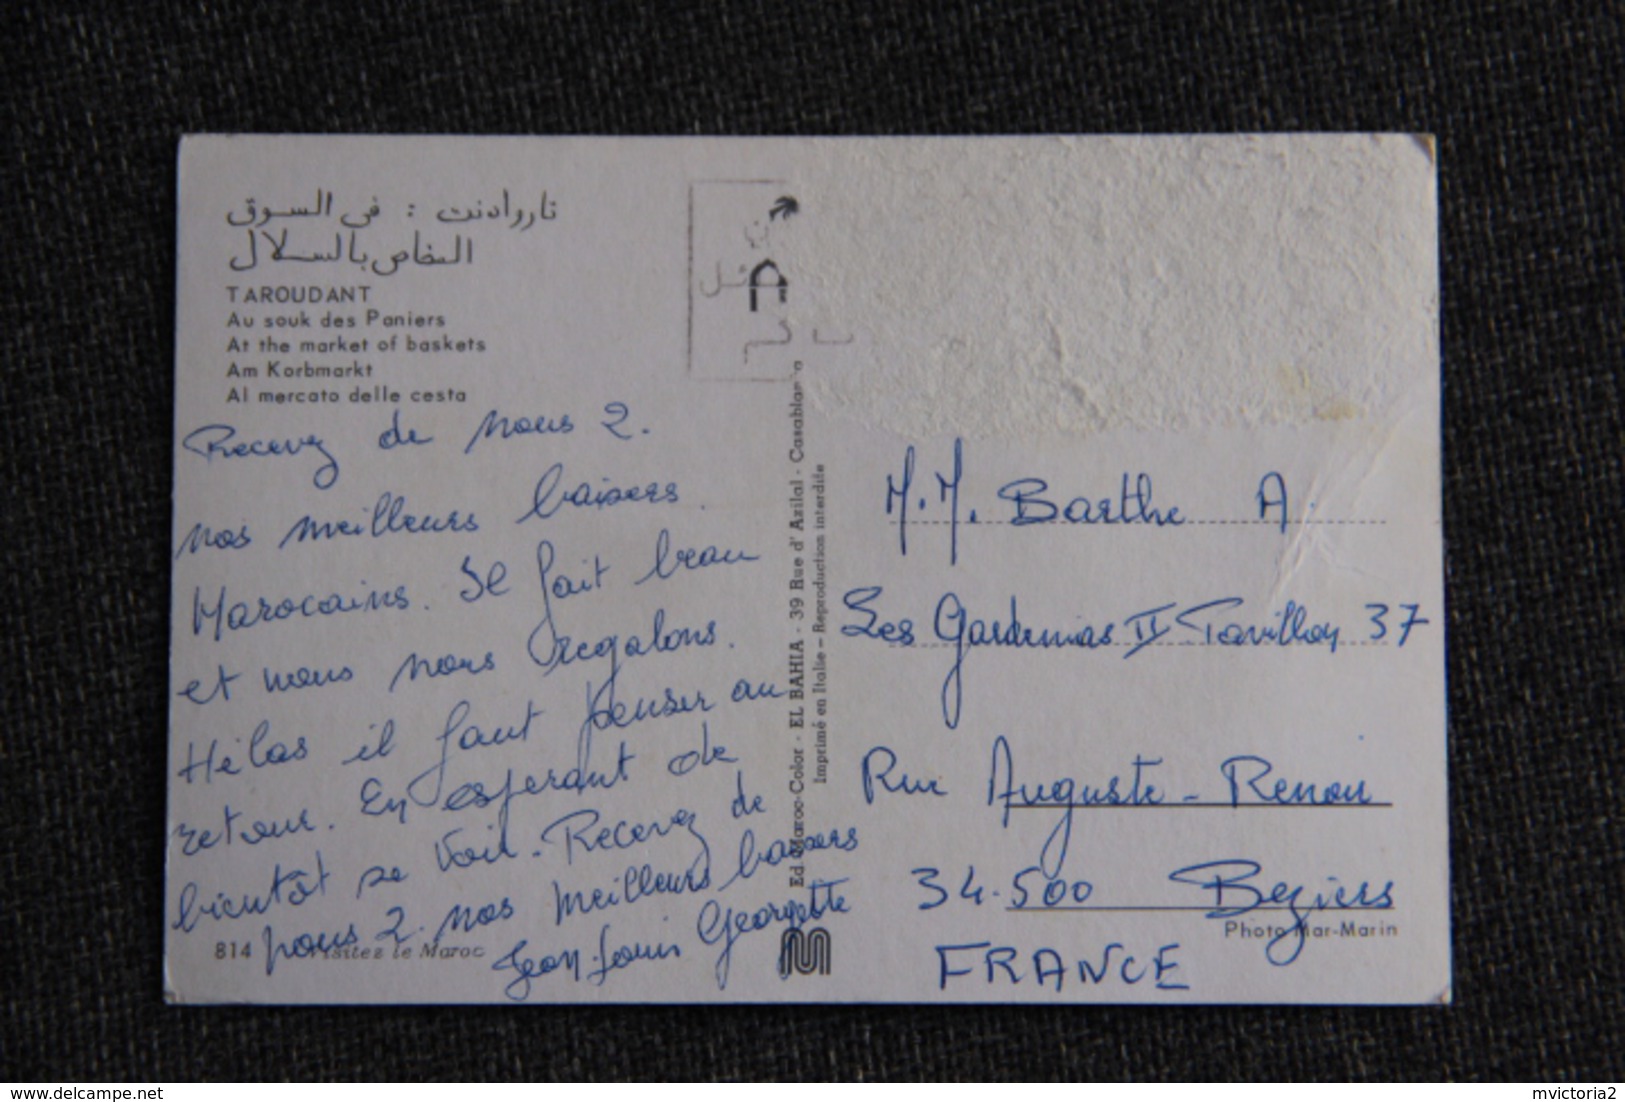 تارودانت : في السوق
الخاص بالسلال
TAROUDANT
Au souk des Paniers
At the market of baskets
Am Korbmarkt
Al mercato delle cesta
Recevez de nous 2.
nos meilleurs baisers
Marocains. Il fait beau
et nous nous régalons.
Hélas il faut penser au
retour. En espérant de
bientôt se voir. Recevez de
nous 2. nos meilleurs baisers
Jean-Louis Georgette
814 Visitez le Maroc
Ed. Maroc-Color - EL BAHIA - 39 Rue d'Azilal - Casablanca
Imprimé en Italie - Reproduction interdite
M.M. Barthe A.
Les Gardenias II Pavillon 37
Rue Auguste-Renoir
34.500 Beziers
Photo Mar-Marin
FRANCE
https://www.delcampe.net
mvictoria2